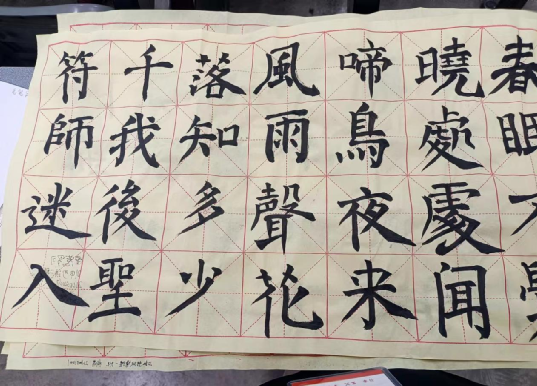 春眠
曉處處聞
啼鳥夜来
風雨聲花
落知多少
千我後聖
符師迷入